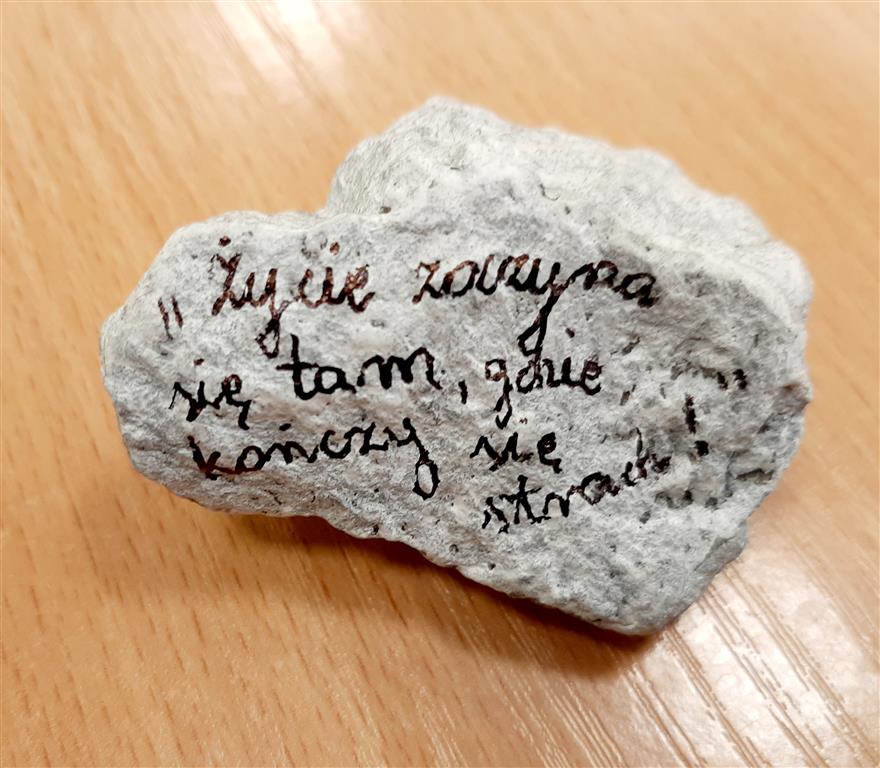 „Życie zaczyna
się tam, gdzie
kończy się
strach!